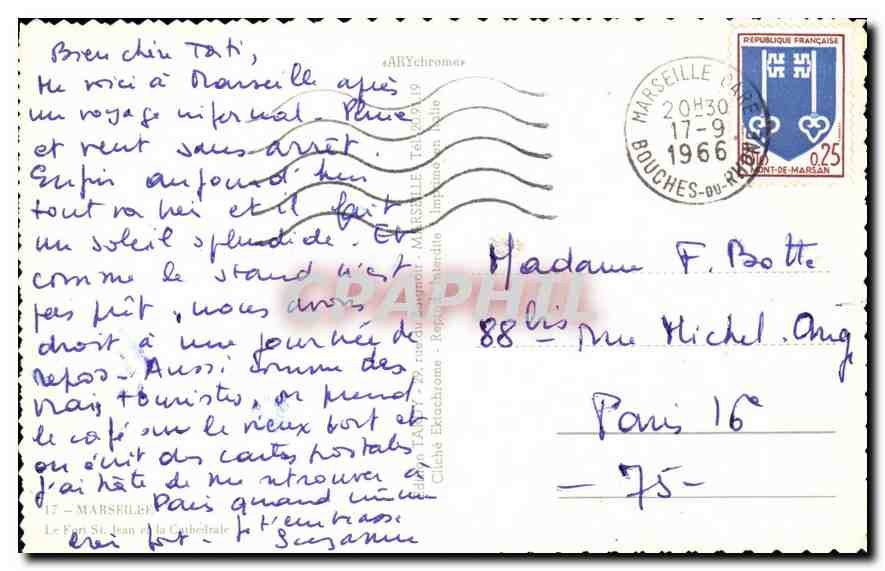 Bien chère Tati,
Me voici à Marseille après
un voyage infernal - Pluie
et vent sans arrêt.
Enfin aujourd'hui
tout va bien et il fait
un soleil splendide. Et
comme le stand n'est
pas prêt, nous avons
droit à une journée de
repos - Aussi comme des
vrais touristes, on prend
le café sur le vieux port et
on écrit des cartes postales
J'ai hâte de me retrouver à
Paris quand même
je t'embrasse
fort - Suzanne
17 - MARSEILLE
Le Fort St. Jean et la Cathédrale
«ARYchrome»
29, rue - MARSEILLE Tél. 20.91.19
Cliché Ektachrome - Interdite Imprimé en Italie
CPAPHIL
MARSEILLE GARE
20H30
17-9
1966
BOUCHES-DU-RHONE
REPUBLIQUE FRANÇAISE
0,25
MONT-DE-MARSAN
Madame F. Botte
88 bis - rue Michel. Ange
Paris 16e
- 75 -